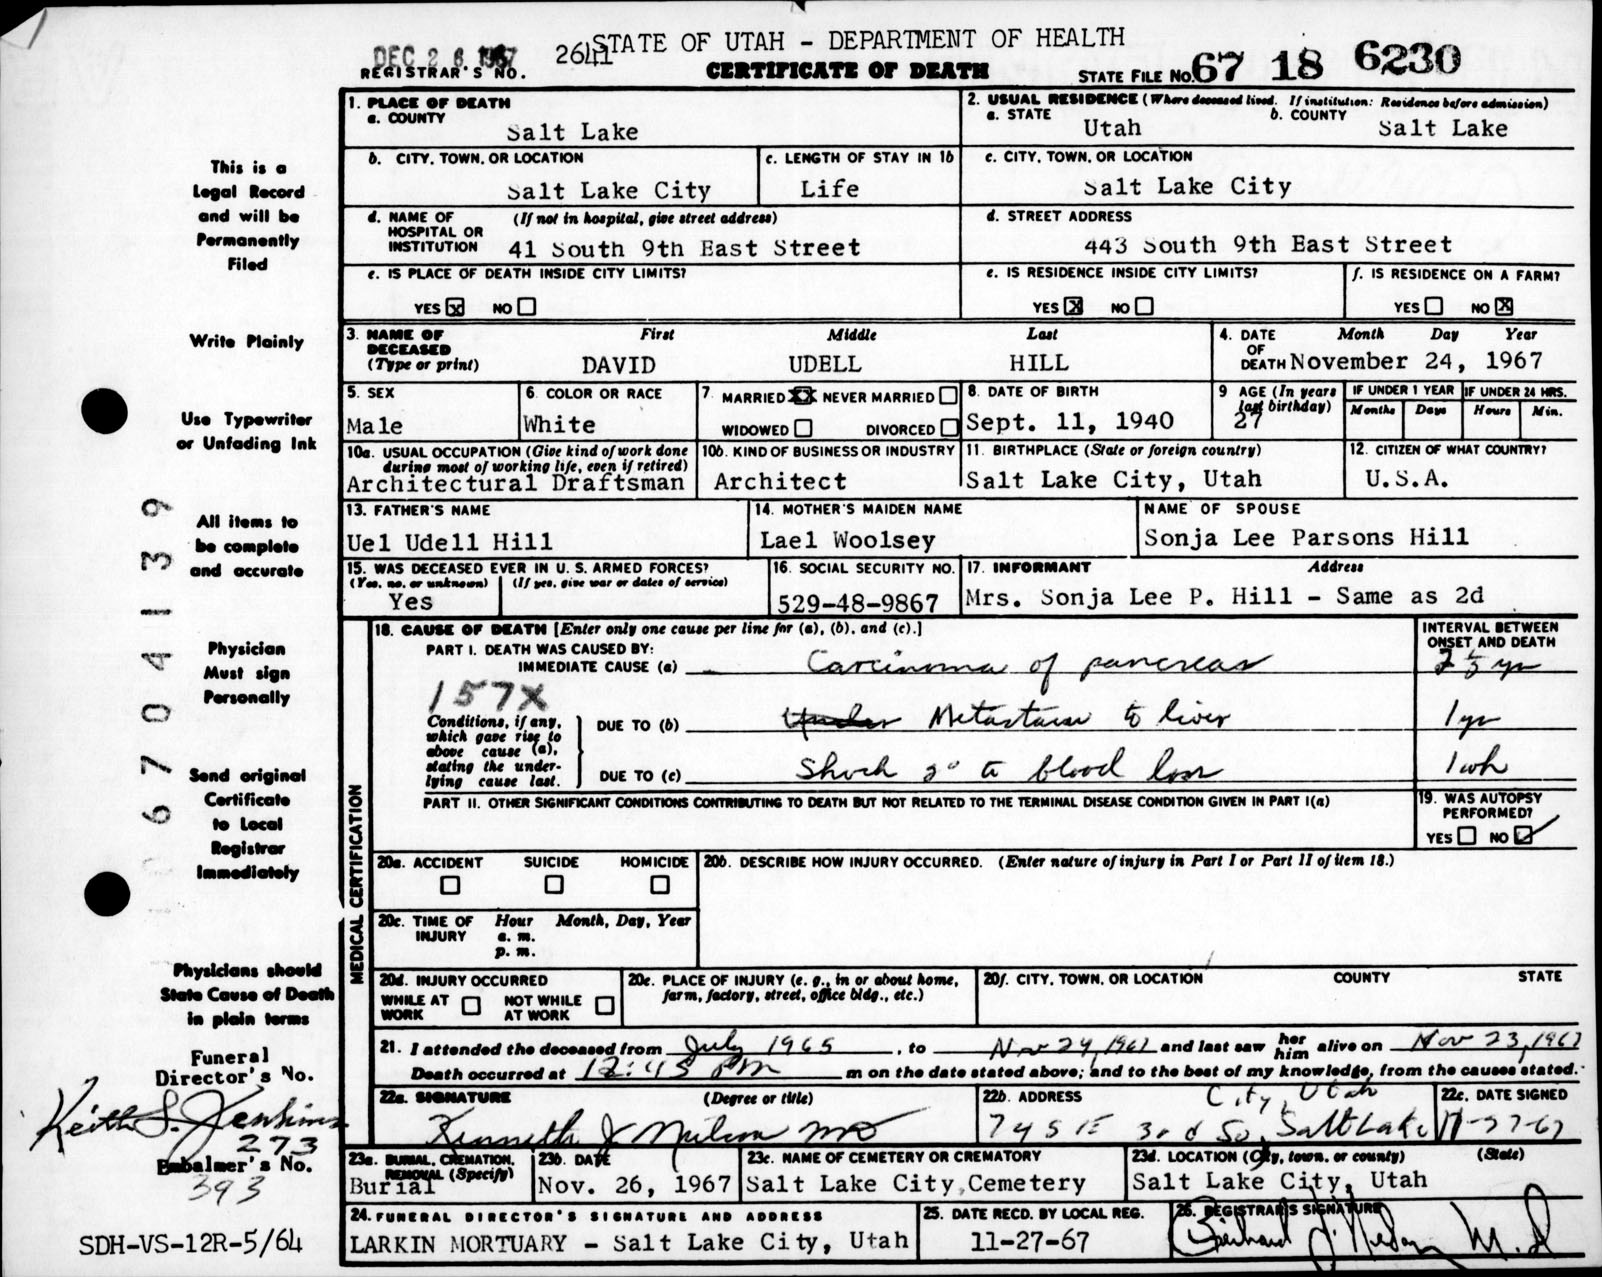 DEC 26 1967 2641 STATE OF UTAH - DEPARTMENT OF HEALTH
REGISTRAR'S NO. CERTIFICATE OF DEATH STATE FILE NO. 67 18 6230
1. PLACE OF DEATH
a. COUNTY
Salt Lake
2. USUAL RESIDENCE (Where deceased lived. If institution: Residence before admission)
a. STATE b. COUNTY
Utah Salt Lake
b. CITY, TOWN, OR LOCATION
Salt Lake City
c. LENGTH OF STAY IN 1b
Life
c. CITY, TOWN, OR LOCATION
Salt Lake City
d. NAME OF HOSPITAL OR INSTITUTION (If not in hospital, give street address)
41 South 9th East Street
d. STREET ADDRESS
443 South 9th East Street
e. IS PLACE OF DEATH INSIDE CITY LIMITS?
YES X NO
e. IS RESIDENCE INSIDE CITY LIMITS?
YES X NO
f. IS RESIDENCE ON A FARM?
YES NO X
3. NAME OF DECEASED (Type or print)
First Middle Last
DAVID UDELL HILL
4. DATE OF DEATH Month Day Year
November 24, 1967
5. SEX
Male
6. COLOR OR RACE
White
7. MARRIED XX NEVER MARRIED
WIDOWED DIVORCED
8. DATE OF BIRTH
Sept. 11, 1940
9 AGE (In years last birthday)
27
IF UNDER 1 YEAR
Months Days
IF UNDER 24 HRS.
Hours Min.
10a. USUAL OCCUPATION (Give kind of work done during most of working life, even if retired)
Architectural Draftsman
10b. KIND OF BUSINESS OR INDUSTRY
Architect
11. BIRTHPLACE (State or foreign country)
Salt Lake City, Utah
12. CITIZEN OF WHAT COUNTRY?
U.S.A.
13. FATHER'S NAME
Uel Udell Hill
14. MOTHER'S MAIDEN NAME
Lael Woolsey
NAME OF SPOUSE
Sonja Lee Parsons Hill
15. WAS DECEASED EVER IN U. S. ARMED FORCES?
(Yes, no, or unknown) (If yes, give war or dates of service)
Yes
16. SOCIAL SECURITY NO.
529-48-9867
17. INFORMANT Address
Mrs. Sonja Lee P. Hill - Same as 2d
MEDICAL CERTIFICATION
18. CAUSE OF DEATH [Enter only one cause per line for (a), (b), and (c).]
INTERVAL BETWEEN ONSET AND DEATH
PART I. DEATH WAS CAUSED BY:
IMMEDIATE CAUSE (a) Carcinoma of pancreas 2 1/2 yr
157X
Conditions, if any, which gave rise to above cause (a), stating the underlying cause last.
DUE TO (b) Metastases to liver 1 yr
DUE TO (c) Shock 2° to blood loss 1 wk
PART II. OTHER SIGNIFICANT CONDITIONS CONTRIBUTING TO DEATH BUT NOT RELATED TO THE TERMINAL DISEASE CONDITION GIVEN IN PART I(a)
19. WAS AUTOPSY PERFORMED?
YES NO ✓
20a. ACCIDENT SUICIDE HOMICIDE
20b. DESCRIBE HOW INJURY OCCURRED. (Enter nature of injury in Part I or Part II of item 18.)
20c. TIME OF INJURY Hour Month, Day, Year
a. m.
p. m.
20d. INJURY OCCURRED
WHILE AT WORK NOT WHILE AT WORK
20e. PLACE OF INJURY (e. g., in or about home, farm, factory, street, office bldg., etc.)
20f. CITY, TOWN, OR LOCATION COUNTY STATE
21. I attended the deceased from July 1965, to Nov 24, 1967 and last saw her him alive on Nov 23, 1967
Death occurred at 12:45 PM m on the date stated above; and to the best of my knowledge, from the causes stated.
22a. SIGNATURE (Degree or title)
Kenneth J Nielson MD
22b. ADDRESS
City, Utah
745 E 3rd So, Salt Lake
22c. DATE SIGNED
11-27-67
23a. BURIAL, CREMATION, REMOVAL (Specify)
Burial
23b. DATE
Nov. 26, 1967
23c. NAME OF CEMETERY OR CREMATORY
Salt Lake City Cemetery
23d. LOCATION (City, town, or county) (State)
Salt Lake City, Utah
24. FUNERAL DIRECTOR'S SIGNATURE AND ADDRESS
LARKIN MORTUARY - Salt Lake City, Utah
25. DATE RECD. BY LOCAL REG.
11-27-67
26. REGISTRAR'S SIGNATURE
M.D
This is a
Legal Record
and will be
Permanently
Filed
Write Plainly
Use Typewriter
or Unfading Ink
All items to
be complete
and accurate
Physician
Must sign
Personally
Send original
Certificate
to Local
Registrar
Immediately
Physicians should
State Cause of Death
in plain terms
Funeral
Director's No.
Keith S. Jenkins
273
Embalmer's No.
393
SDH-VS-12R-5/64
6704139